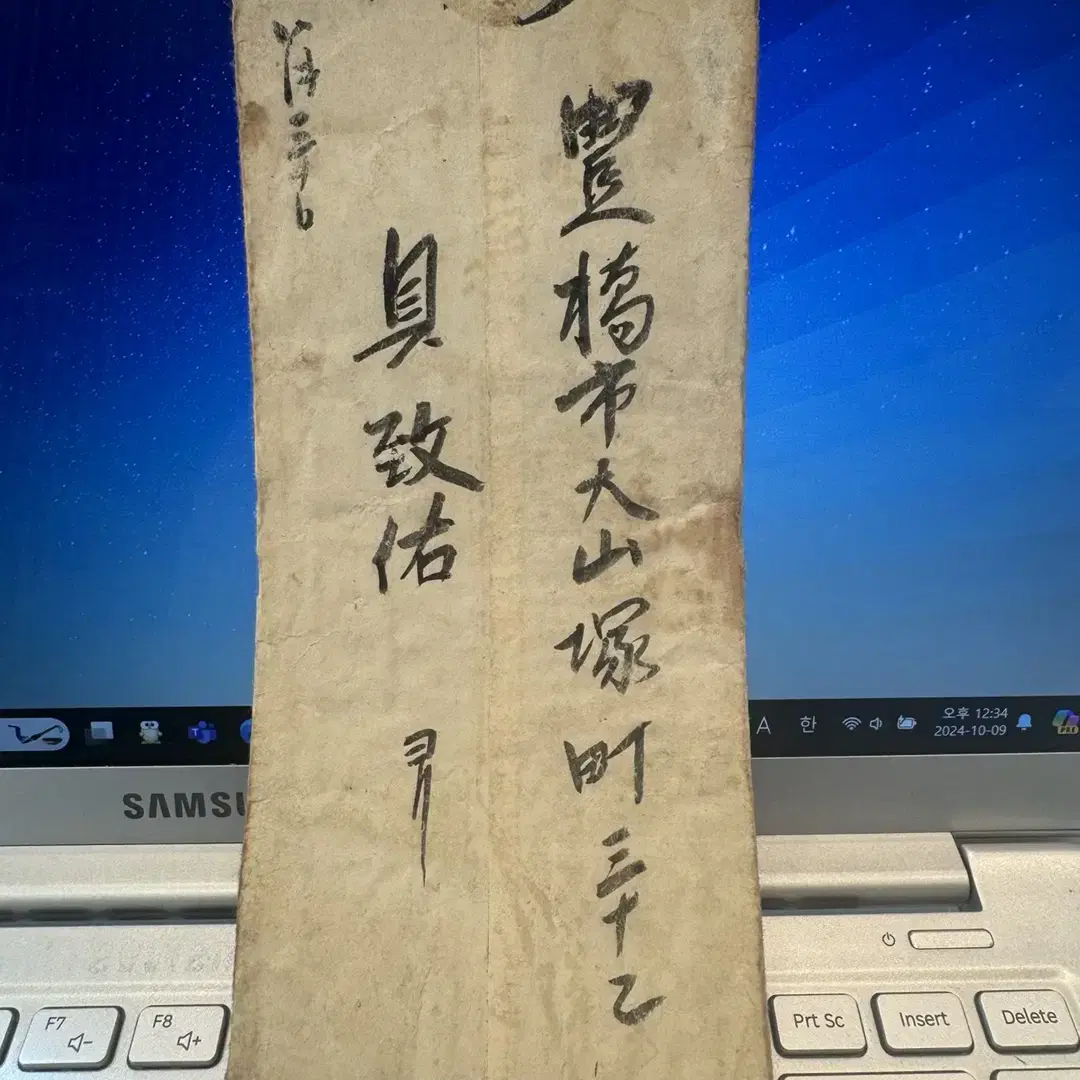 豊橋市大山塚町三十乙
具致佑
A 한
오후 12:34
2024-10-09
SAMSU
F7
F8
Prt Sc
Insert
Delete